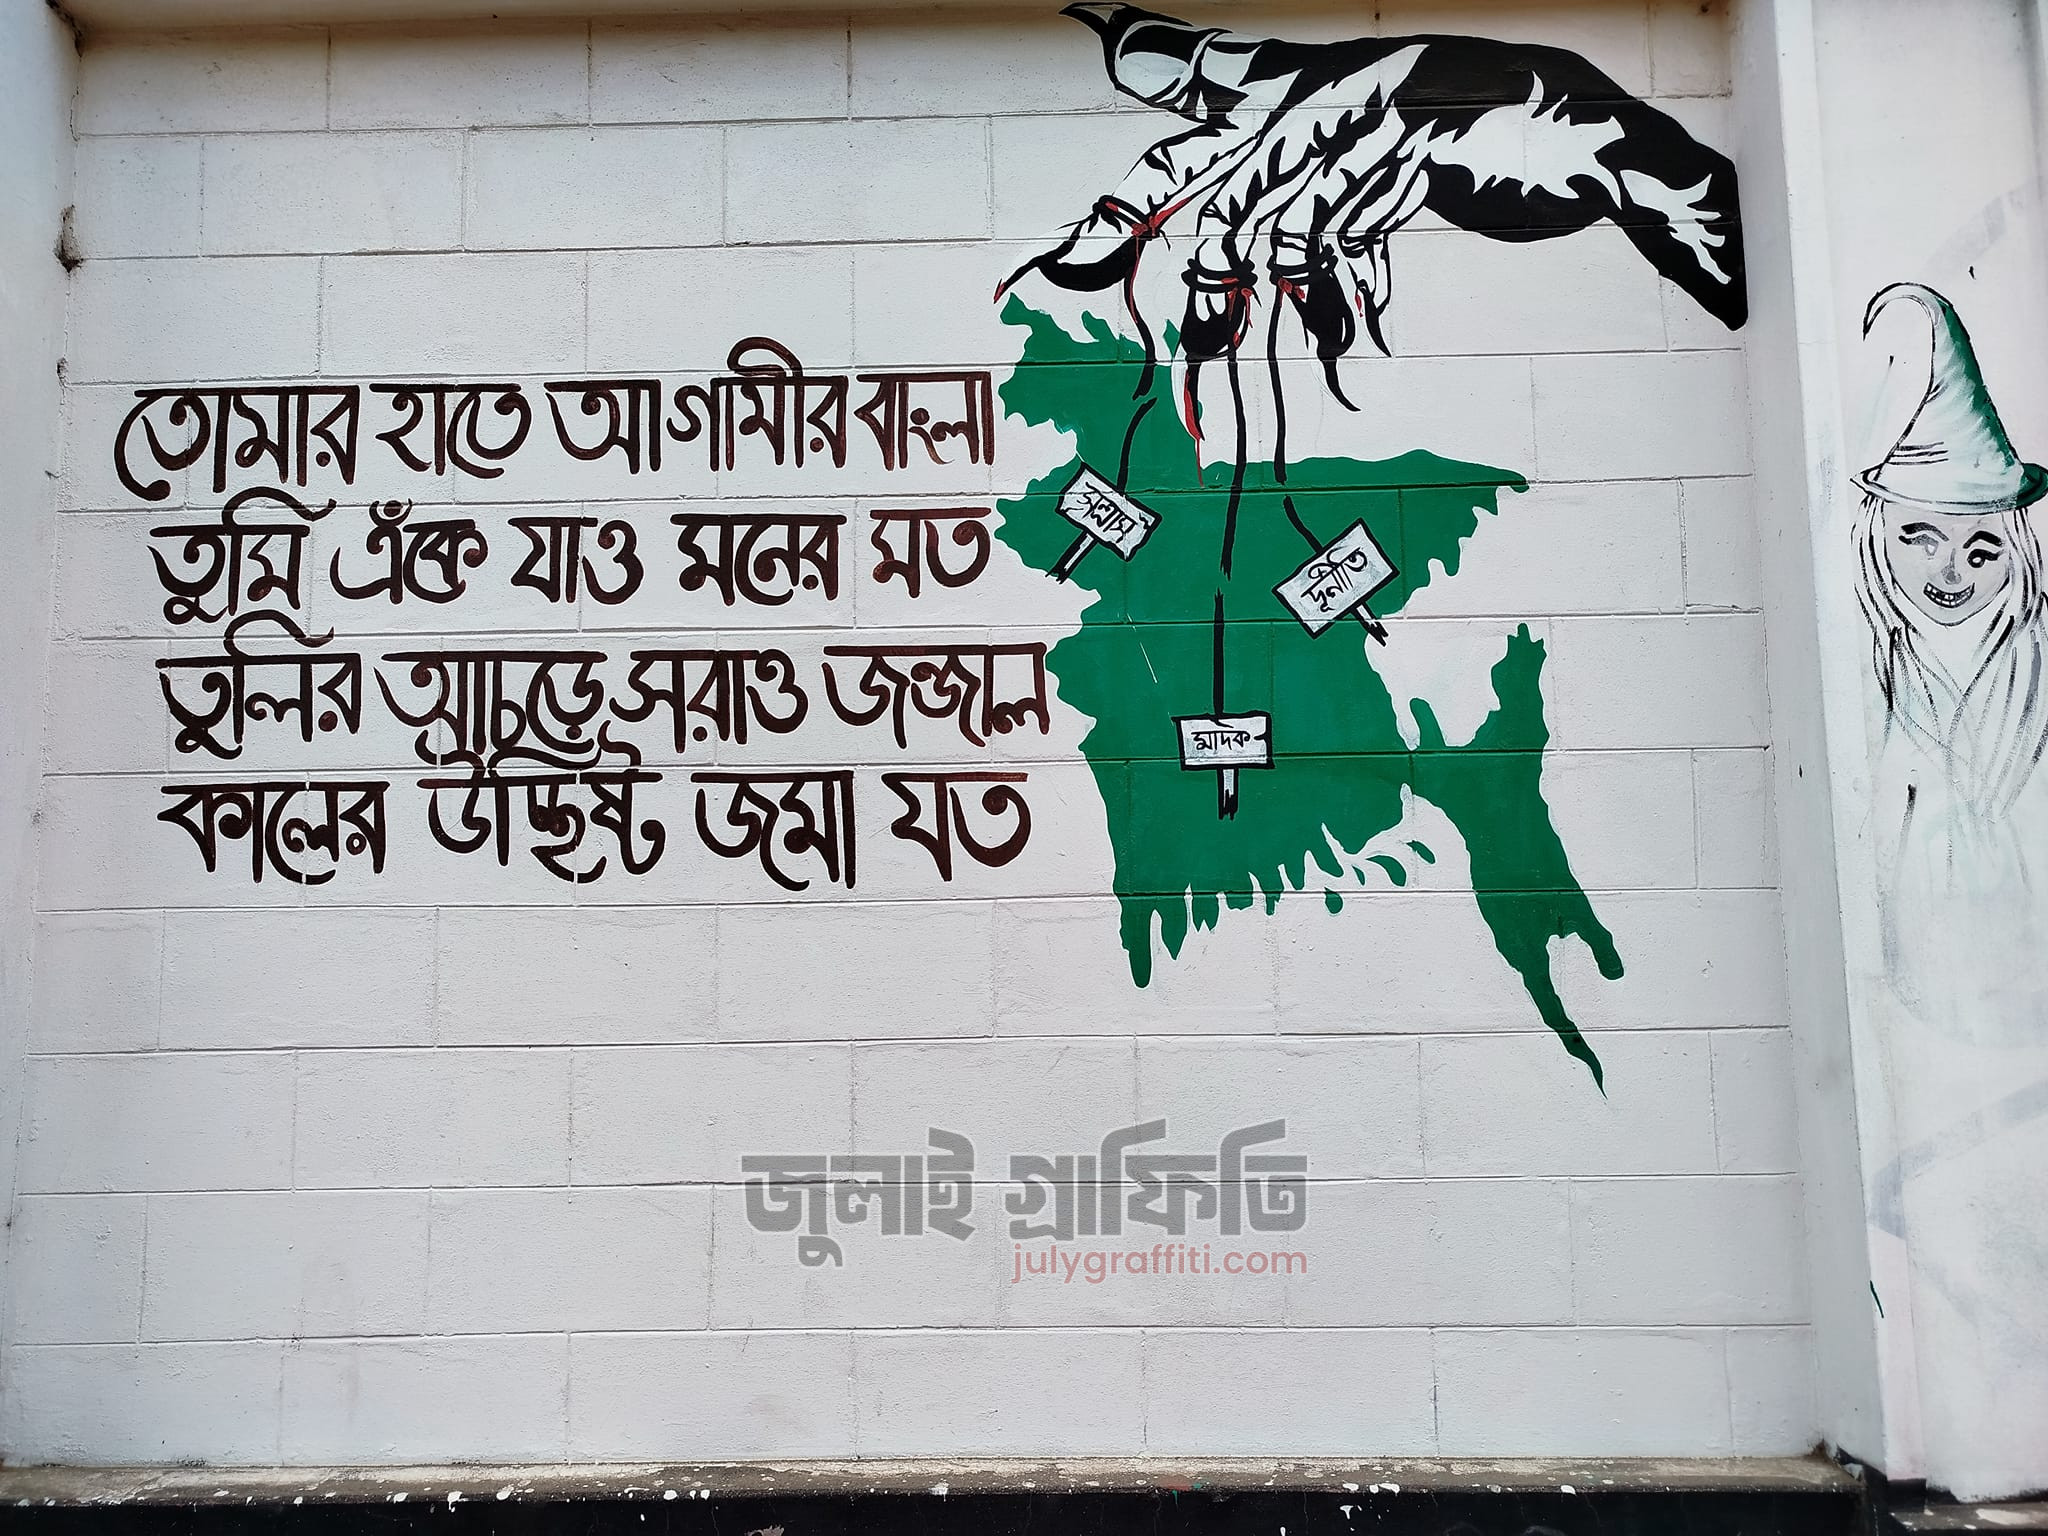 তোমার হাতে আগামীর বাংলা
তুমি এঁকে যাও মনের মত
তুলির আচড়ে সরাও জন্জাল
কালের উচ্ছিষ্ট জমা যত
সন্ত্রাস
দূর্নীতি
মাদক
জুলাই গ্রাফিতি
julygraffiti.com